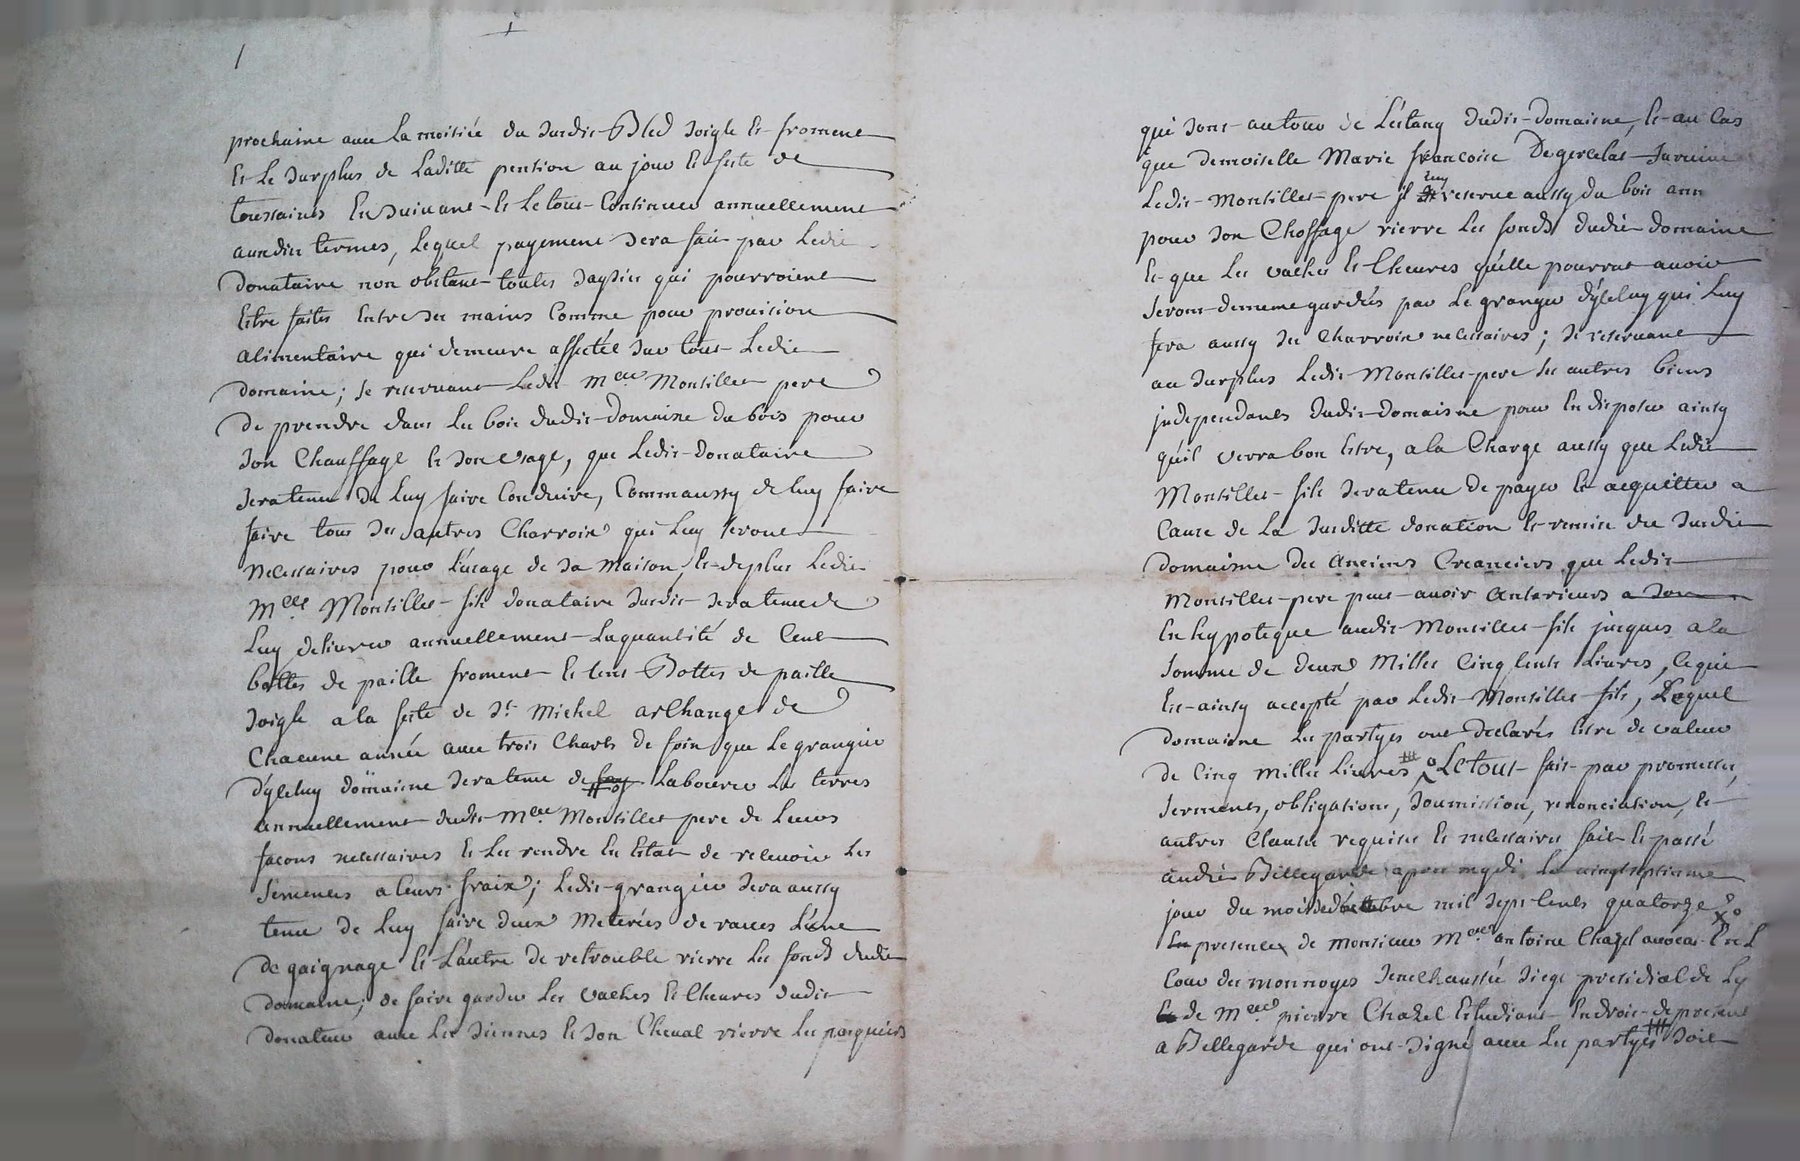 prochaine avec la moitiée du susdit Bled soigle et froment
et le surplus de laditte pention au jour et feste de
toussaints ensuivant et le tout continuer annuellement
auxdits termes, lequel payement sera fait par ledit
donataire non obstant toutes saysies qui pourroient
estre faites entre ses mains comme pour provision
alimentaire qui demeure affectée sur tout ledit
domaine; se reservant ledit Montillet pere
de prendre dans les bois dudit domaine du bois pour
son chauffage et son usage, que ledit donataire
sera tenu de luy faire conduire, comm aussy de luy faire
faire tous ses autres charrois qui luy seront
necessaires pour l'usage de sa maison, et de plus ledit
Montillet fils donataire susdit sera tenu de
luy delivrer annuellement la quantité de cent
bottes de paille froment et cent Bottes de paille
soigle a la feste de St Michel archange de
chacune année avec trois chars de foin que le granger
d'yceluy domaine sera tenu de labourer les terres
annuellement dudit Montillet pere de leurs
facons necessaires et les rendre en estat de recevoir les
semences a leurs fraix; ledit granger sera aussy
tenu de luy faire deux meterées de raves l'une
de gaignage et l'autre de retrouble rierre les fonds dudit
domaine; de faire garder les vaches et chevres dudit
donateur avec les siennes et son cheval rierre les pasquiers
qui sont autour de l'estang dudit domaine, et au cas
que demoiselle Marie francoise Degercelat survive
ledit Montillet pere il luy reserve aussy du bois
pour son choffage rierre les fonds dudit domaine
et que les vaches et chevres qu'elle pourrat avoir
seront de meme gardées par le granger d'yceluy qui luy
fera aussy ses charrois necessaires; se reservant
au surplus ledit Montillet pere ses autres biens
independants dudit domaine pour en disposer ainsy
qu'il verra bon estre, a la charge aussy que ledit
Montillet fils sera tenu de payer et acquitter a
cause de la susditte donation et remise du susdit
domaine des anciens creanciers que ledit
Montillet pere peut avoir anterieurs a son
en hypoteque audit Montillet fils jusques a la
somme de deux milles cinq cents livres, ce qui
est ainsy accepté par ledit Montillet fils, Lequel
domaine les partyes ont declarés estre de valeur
de cinq milles livres Le tout fait par promesses,
serments, obligations, soumission, renonciation, et
autres clauses requises et necessaires fait et passé
audit Bellegarde apres mydi le vingt septieme
jour du mois d'octobre mil sept cents quatorze
en presence de monsieur antoine Chazel avocat en L
cour des monnoyes senechaussée siege presidial de Ly
et de pierre Chazel estudiant en droit de present
a Bellegarde qui ont signé avec les partyes soit